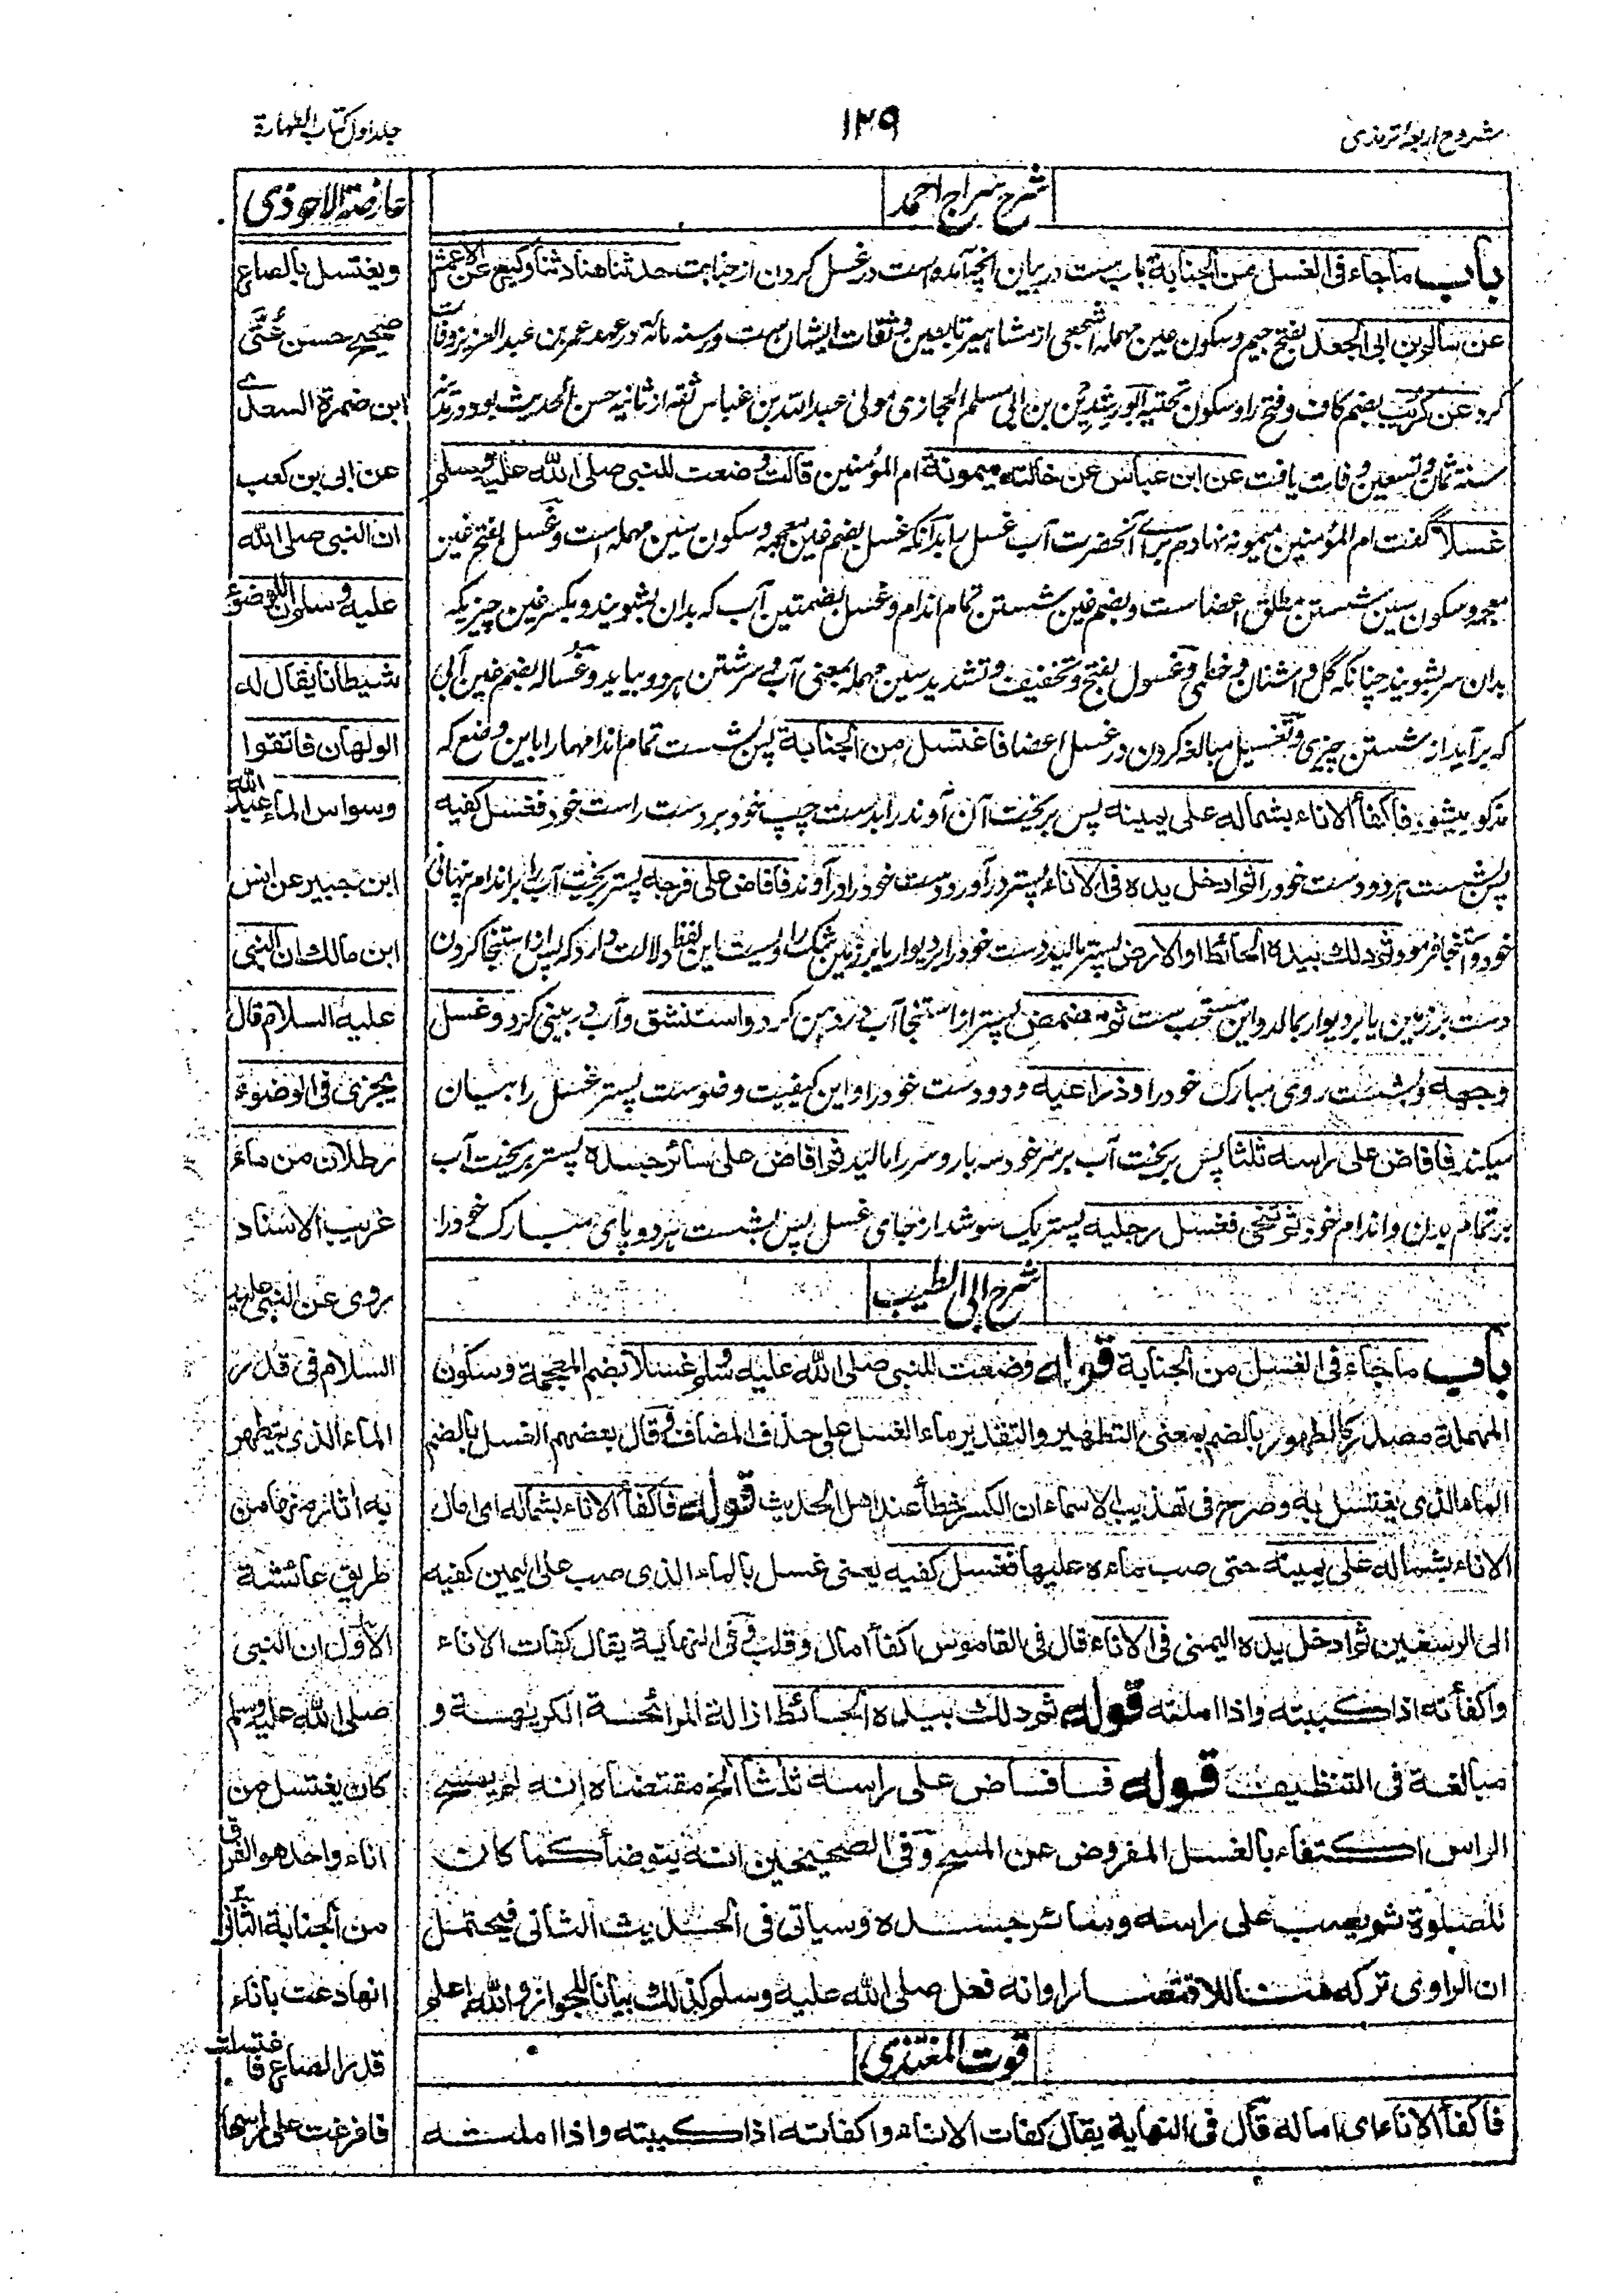 شروح اربعہ ترمذی
۱۲۹
جلد اول کتاب الطہارة
شرح سراج احمد
باب ماجاء فی الغسل من الجنابة باب ست در بیان انچہ آمدہ است در غسل کردن از جنابت حدثنا هناد ثنا وکیع عن الاعمش
عن سالم بن ابی الجعد بفتح جیم وسکون عین مہملہ اشجعی از مشاہیر تابعین وثقات ایشان ست ودر سنہ مائة در عہد عمر بن عبد العزیز وفات
کرد عن کریب بضم کاف وفتح را وسکون تحتیہ ابو رشدین بن ابی مسلم الحجازی مولی عبد اللہ بن عباس ثقہ از ثانیہ حسن الحدیث بود
سنة ثمان وتسعین وفات یافت عن ابن عباس عن خالته میمونة ام المؤمنین قالت وضعت للنبی صلی اللہ علیہ وسلم
غسلاً گفت ام المؤمنین میمونہ نہادم برای آنحضرت آب غسل را بدانکہ غسل بضم غین معجمہ وسکون سین مہملہ است وغسل بفتح غین
معجمہ وسکون سین شستن مطلق اعضاست وبضم غین شستن تمام اندام وغسل بضمتین آب کہ بدان بشویند وبکسر غین چیزیکہ
بدان سر بشویند چنانکہ گل واشنان وخطمی وغسول بفتح وتخفیف وتشدید سین مہملہ بمعنی آب وسرشتن ہر دو بیاید وغسالہ بضم غین آبی
کہ برآید از شستن چیزی وتغسیل مبالغہ کردن در غسل اعضا فاغتسل من الجنابة پس بشست تمام اندامہا را باین وضع کہ
مذکور میشود فاکفأ الاناء بشماله علی یمینه پس بریخت آن آوند را بدست چپ خود بر دست راست خود فغسل کفیه
پس بشست ہر دو دست خود را ثم ادخل یدہ فی الاناء پستر درآورد دست خود را در آوند فافاض علی فرجه پستر بریخت آب را بر اندام نہانی
خود واستنجا فرمود ثم دلك بیده الحائط او الارض پستر مالید دست خود را بر دیوار یا بر زمین شک راویست این لفظ دلالت دارد کہ پس از استنجا کردن
دست بر زمین یا بر دیوار بمالد واین مستحب ست ثم مضمض پستر از استنجا آب در دہن کرد واستنشق وآب در بینی کرد وغسل
وجهه وبشست روی مبارک خود را وذراعیه ودو دست خود را واین کیفیت وضوست پستر غسل را بیان
میکند فافاض علی راسه ثلثا پس بریخت آب بر سر خود سہ بار وسر را مالید ثم افاض علی سائر جسدہ پستر بریخت آب
بر تمام بدن واندام خود ثم تنحی فغسل رجلیه پستر یک سو شد از جای غسل پس بشست ہر دو پای مبارک خود را
شرح ابی الطیب
باب ماجاء فی الغسل من الجنابة قوله وضعت للنبی صلی اللہ علیه وسلم غسلا بضم المعجمة وسکون
المهملة مصدر کالطهور بالضم بمعنی التطهیر والتقدیر ماء الغسل علی حذف المضاف وقال بعضهم الغسل بالضم
الماء الذی یغتسل به وصرح فی تهذیب الاسماء ان الکسر خطأ عند اهل الحدیث قوله فاکفأ الاناء بشماله ای امال
الاناء بشماله علی یمینه حتی صب ماءه علیها فغسل کفیه یعنی غسل بالماء الذی صب علی الیمین کفیه
الی الرسغین ثم ادخل یده الیمنی فی الاناء قال فی القاموس اکفأ امال وقلب وفی النهایة یقال کفات الاناء
واکفأته اذا کببته واذا املته قوله ثم دلك بیده الحائط ازالة للرائحة الکریهة و
مبالغة فی التنظیف قوله فافاض علی راسه ثلثا الخ مقتضاه انه لم یمسح
الراس اکتفاء بالغسل المفروض عن المسح وفی الصحیحین انه یتوضأ کما کان
للصلوة ثم یصب علی راسه وسائر جسده وسیاتی فی الحدیث الثانی فیحتمل
ان الراوی ترکه هنا للاقتصار او انه فعل صلی اللہ علیه وسلم کذلك بیانا للجواز واللہ اعلم
قوت المغتذی
فاکفأ الاناء ای اماله قال فی النهایة یقال کفات الاناء واکفاته اذا کببته واذا املته
عارضة الاحوذی
ویغتسل بالصاع
صحیح حسن عُتَی
ابن ضمرة السعدی
عن ابی بن کعب
ان النبی صلی الله
علیه وسلم ان للوضوء
شیطانا یقال له
الولهان فاتقوا
وسواس الماء عبد الله
ابن جبیر عن انس
ابن مالك ان النبی
علیه السلام قال
یجزی فی الوضوء
رطلان من ماء
غریب الاسناد
روی عن النبی علیه
السلام فی قدر
الماء الذی یتطهر
به اثار منها من
طریق عائشة
الاول ان النبی
صلی الله علیه وسلم
کان یغتسل من
اناء واحد هو الفرق
من الجنابة الثانی
انها دعت باناء
قدر الصاع فاغتسلت
فافرغت علی راسها